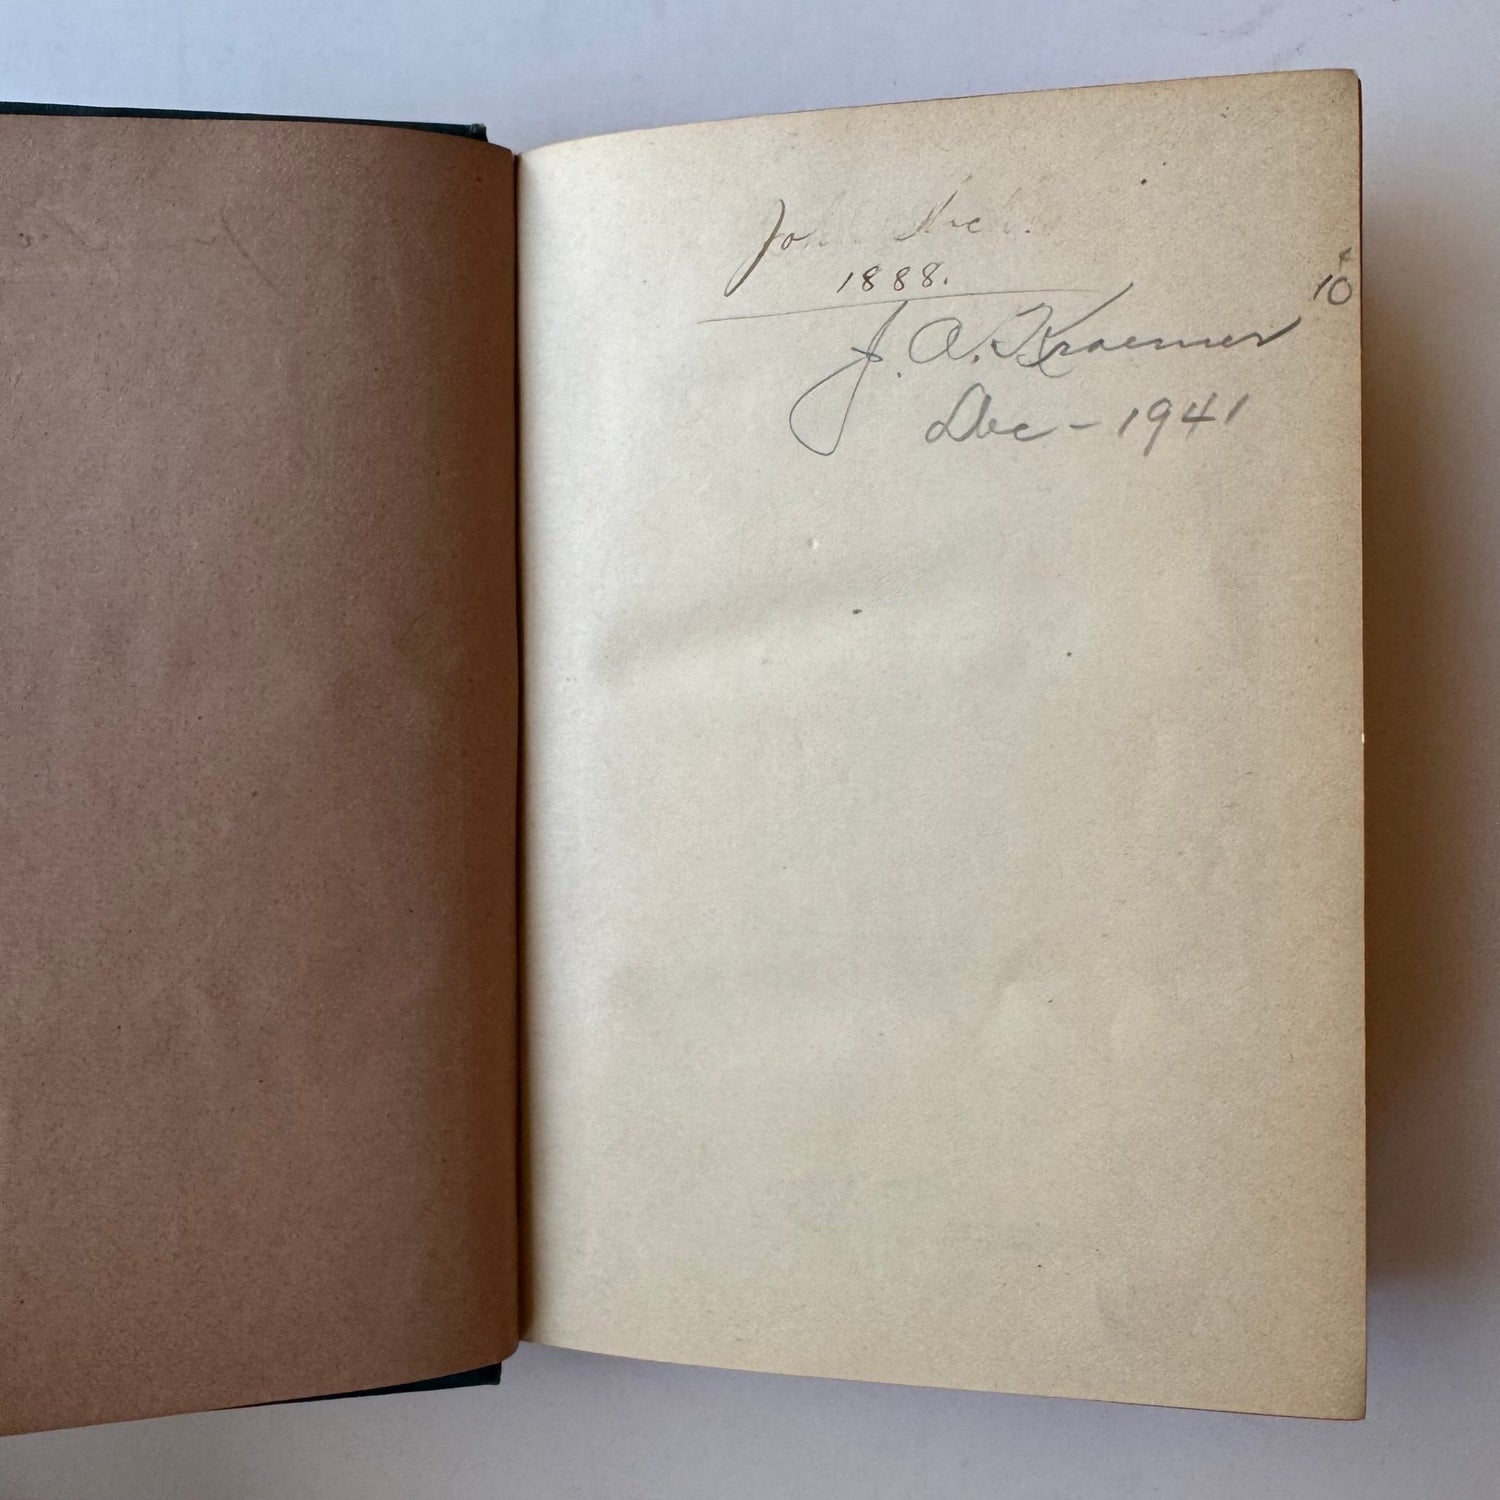 John
1888.
10
J. A. Kraemer
Dec - 1941